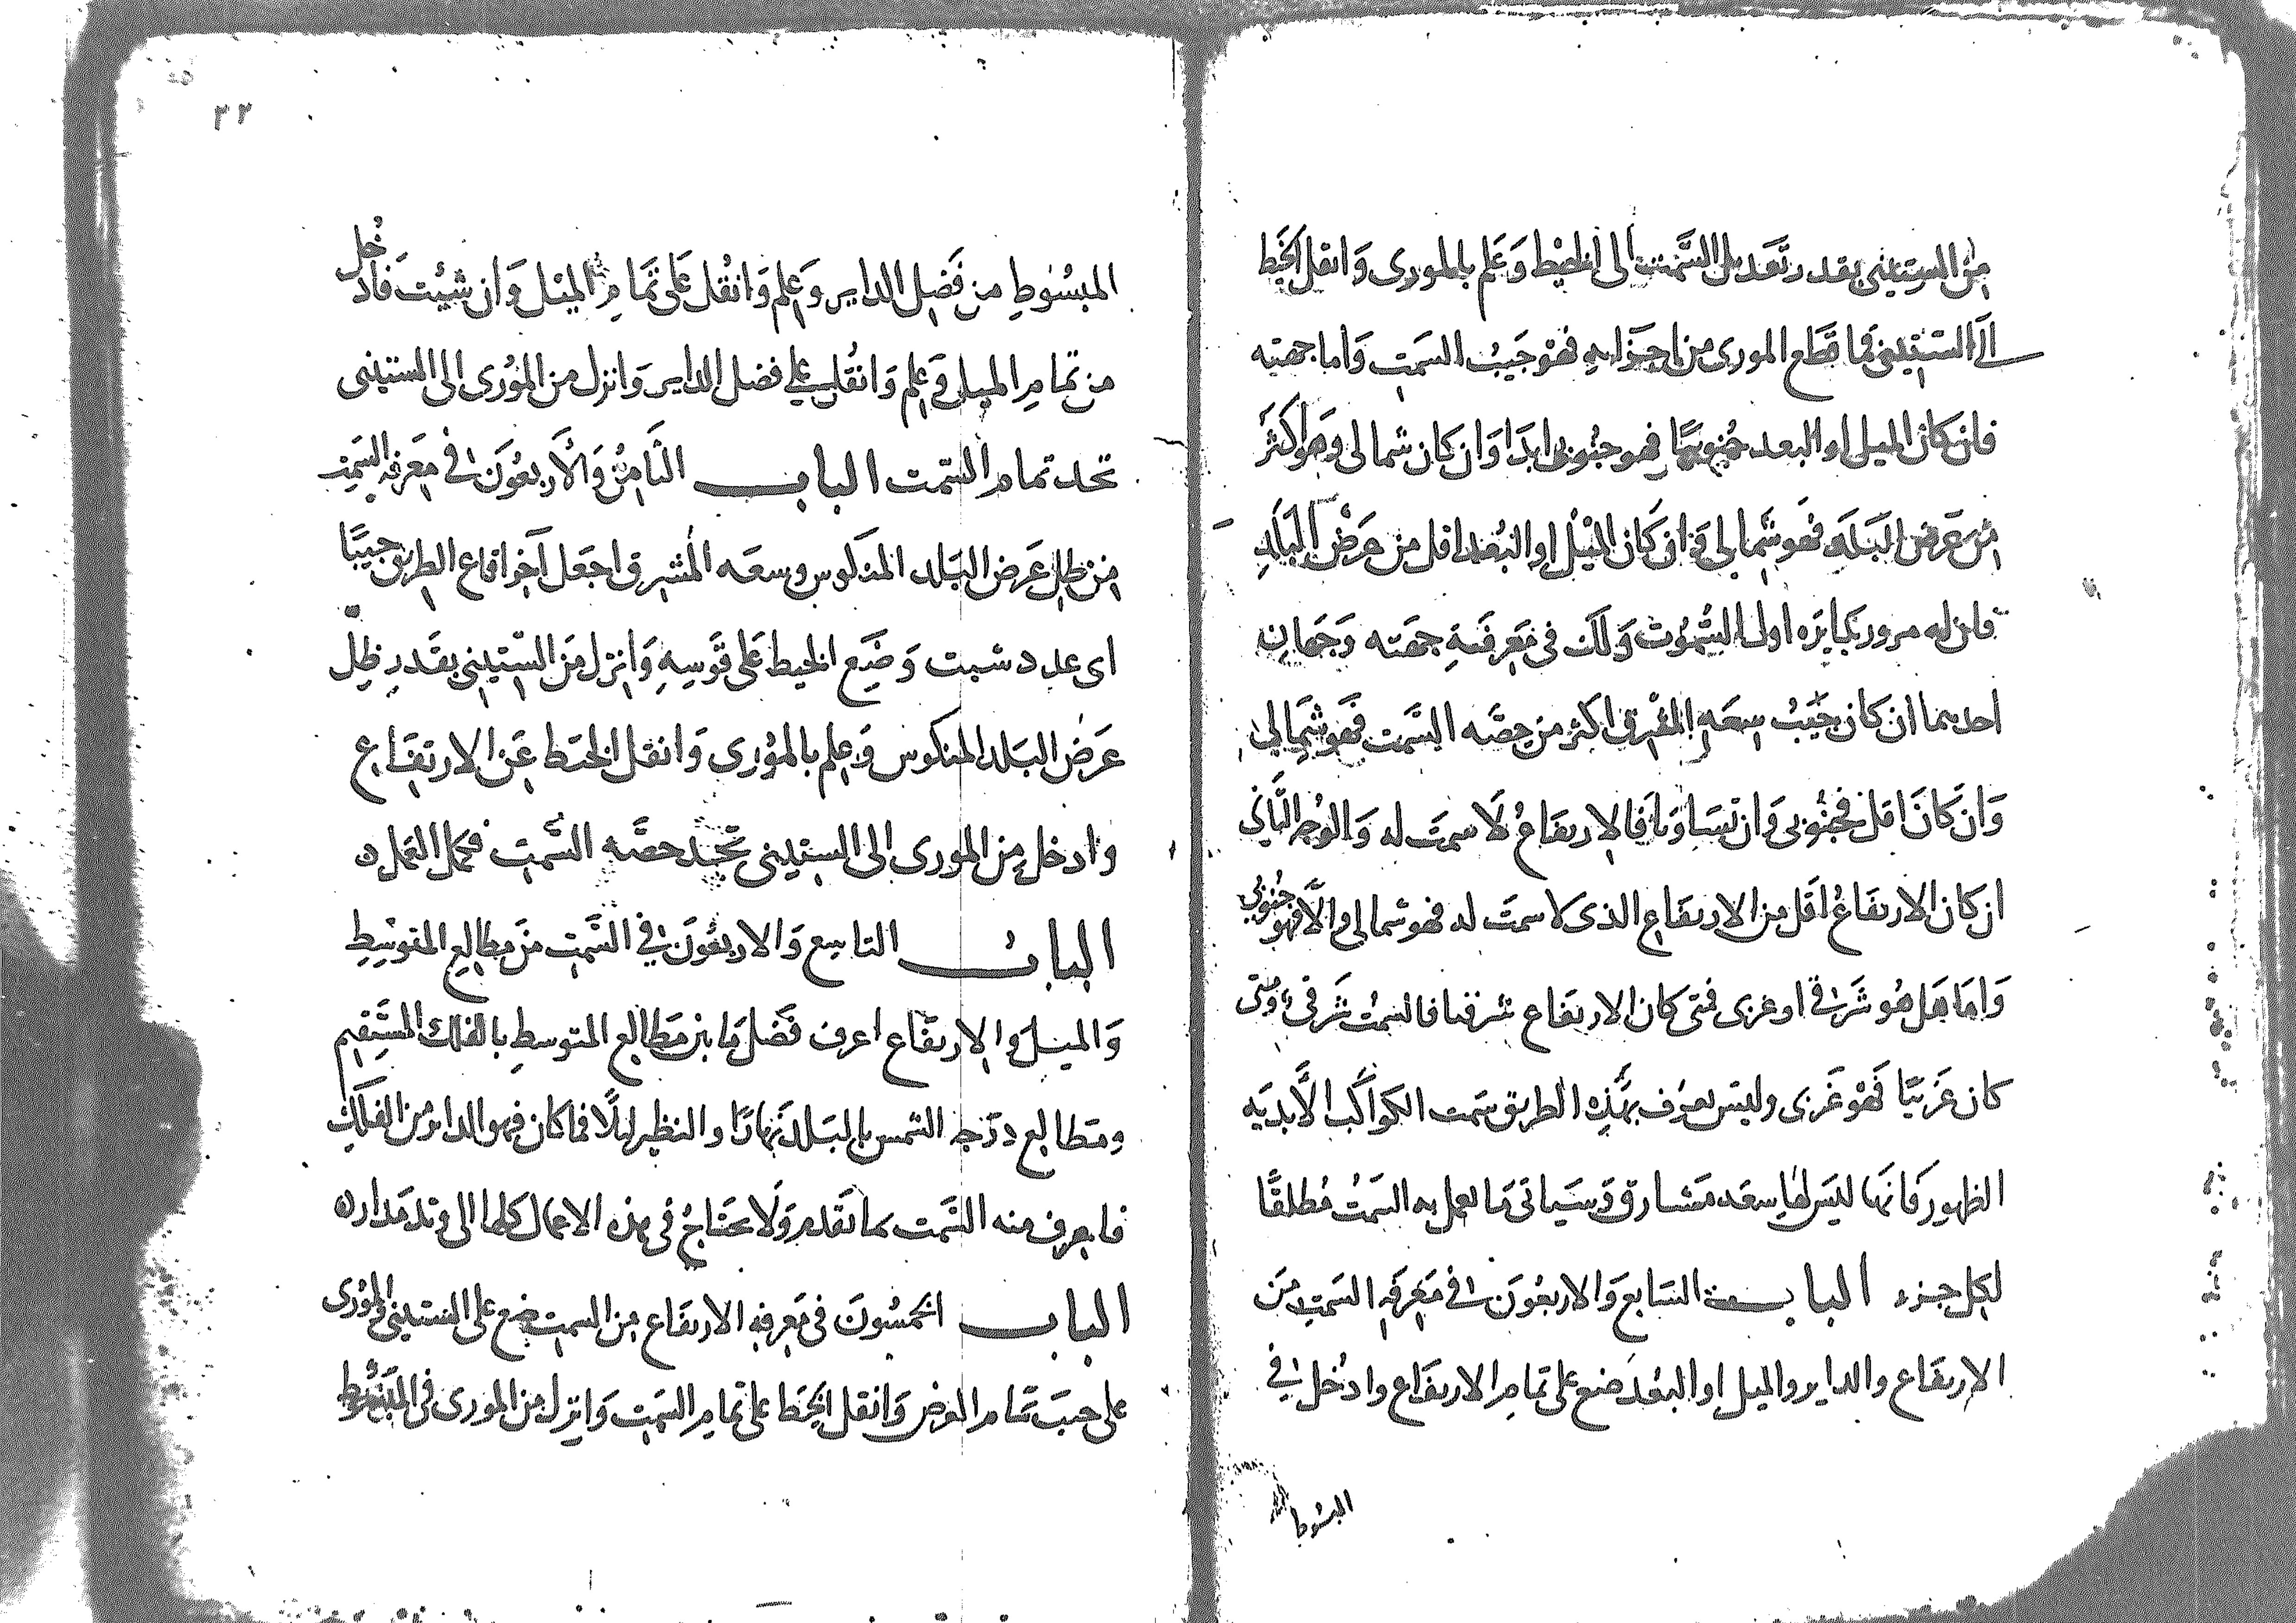 من الستيني بقدر تعديل السمت الى الخيط وعلم بالموري وانقل الخيط
الى الستيني فما قطع الموري من اجزايه فهو جيب السمت واما جهته
فان كان الميل او البعد جنوبيا فهو جنوبي ابدا وان كان شمالي وهو اكثر
من عرض البلد فهو شمالي وان كان الميل او البعد اقل من عرض البلد
فان له مرور بدايره اول السموت ولك في معرفة جهته وجهان
احدهما ان كان جيب سعه المشرق اكثر من حصه السمت فهو شمالي
وان كان اقل فجنوبي وان تساويا فالارتفاع لا سمت له والوجه الثاني
ان كان الارتفاع اقل من الارتفاع الذي لا سمت له فهو شمالي والا فهو جنوبي
واما هل هو شرقي او غربي فمتى كان الارتفاع شرقيا فالسمت شرقي ومتى
كان غربيا فهو غربي وليس يعرف بهذه الطريق سمت الكواكب الابديه
الظهور فانها ليس لها سعه مشارق وسياتي ما يعمل به السمت مطلقا
لكل جزء الباب السابع والاربعون في معرفه السمت من
الارتفاع والداير والميل او البعد ضع على تمام الارتفاع وادخل في
المبسوط
٣٢
المبسوط من فضل الداير وعلم وانقل على تمام الميل وان شيت فادخل
من تمام الميل وعلم وانقل على فضل الداير وانزل من الموري الى الستيني
تجد تمام السمت الباب الثامن والاربعون في معرفه السمت
من ظل عرض البلد المنكوس وسعه المشرق اجعل آخر اقاع الطريق جيبا
اي عدد شيت وضع الخيط على قوسه وانزل من الستيني بقدر ظل
عرض البلد المنكوس وعلم بالموري وانقل الخيط عن الارتفاع
وادخل من الموري الى الستيني تجد حصه السمت فكمل العمل
الباب التاسع والاربعون في السمت من مطالع المتوسط
والميل والارتفاع اعرف فضل ما بين مطالع المتوسط بالفلك المستقيم
ومطالع درجه الشمس بالبلد نهارا والنظير ليلا فما كان فهو الداير من الفلك
فاعرف منه السمت كما تقدم ولا تحتاج في هذه الاعمال كلها الى وتد مداره
الباب الخمسون في معرفه الارتفاع من السمت ضع على الستيني والموري
على جيب تمام العرض وانقل الخيط على تمام السمت وانزل من الموري في المبسوط